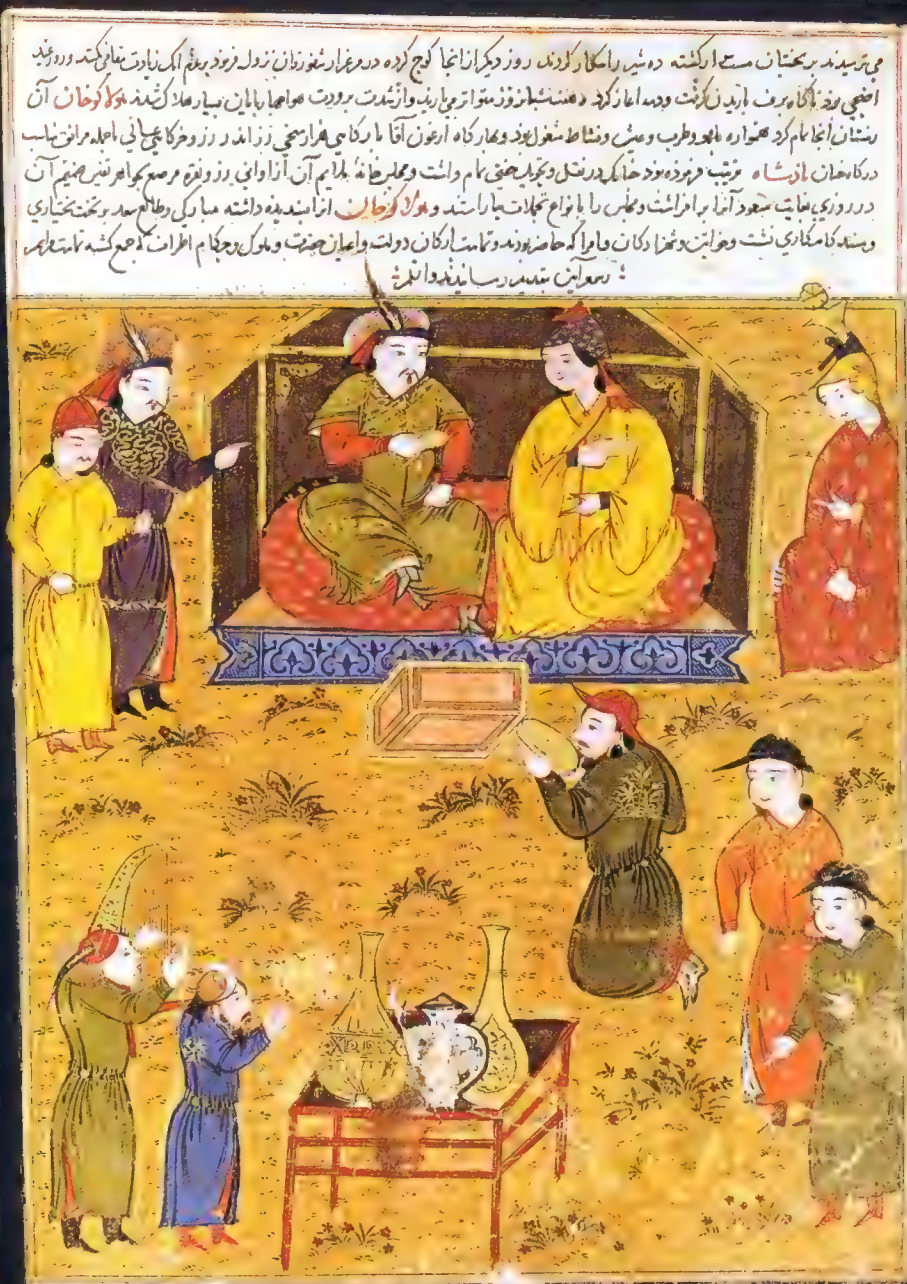 می ترسیدند بر بختیان مست ار کشته ده شیر را شکار کردند روز دیگر از انجا کوچ کرده در مرغزار شفورقان نزول فرمود بر عزم انک زیادت مقامی نکند و روز عید
اضحی بود ناکاه برف باریدن کرفت و دمه اغاز کرد و هفت شبانروز متواتر می بارید و از شدت برودت هوا چهارپایان بسیار هلاک شدند هولاکوخان آن
زمستان انجا مقام کرد همواره بلهو و طرب و عیش و نشاط مشغول بود و بهارکاه ارغون آقا بارکاهی هزار میخی زر اندر زر و خرکاهی عالی با جمله مرافق مناسب
درکاه چنان پادشاه ترتیب فرموده بود چنانک در نقل و تحویل خفتی تمام داشت و مجلس خانه ملایم آن از اوانی زر و نقره مرصع بجواهر نفیس ضمیم آن
در روزی بغایت مسعود آنرا برافراشت و مجلس را بانواع تجملات بیاراستند و هولاکوخان انرا پسندیده داشته بمبارکی و طالع سعد بر تخت بختیاری
و مسند کامکاری نشست و خواتین و شهزادکان و امرا که حاضر بودند و تمامت ارکان دولت و اعیان حضرت و ملوک و حکام اطراف که جمع کشته تمامت مراسم
رسم آیین بتقدیم رسانیدند